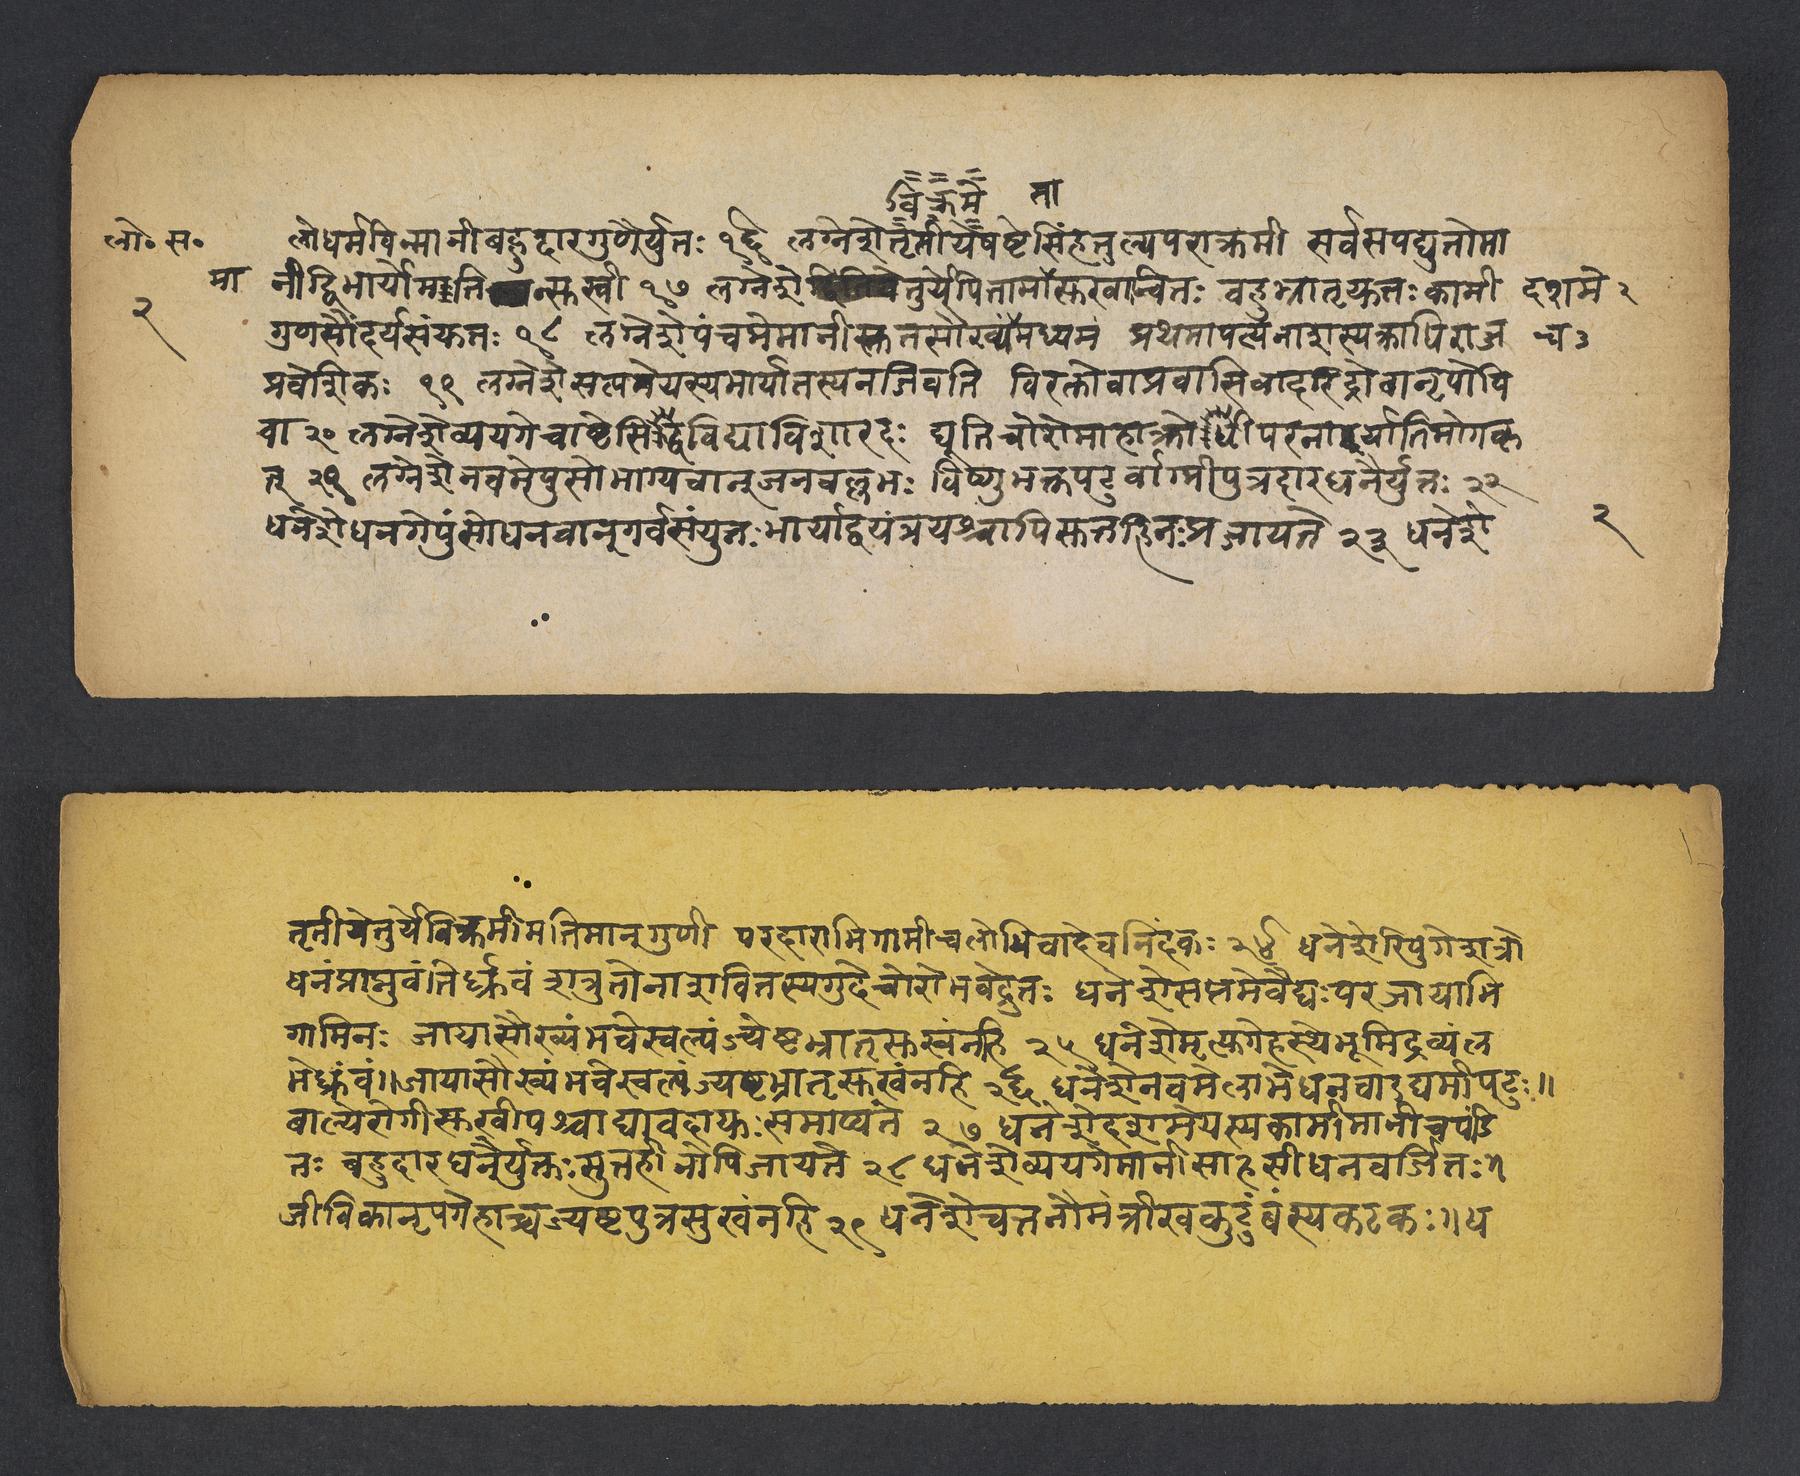 विक्रमे ता
लो॰ स॰ लोधर्मविन्मानीबहुदारगुणैर्युतः १६ लग्नेशेतृतीयेषष्टेसिंहतुल्यपराक्रमी सर्वसपद्युतोमा
मा नीद्विभार्योमतिन्सुखी १७ लग्नेशेतुर्येपितामांसुखान्वितः बहुभ्रातृयुतःकामी दशमे २
२ गुणसौंदर्यसंयुतः १८ लग्नेशेपंचमेमानीसुतसौख्यंमध्यमं प्रथमापत्यंनाशस्यक्रोधिराज च ३
प्रवेशिकः १९ लग्नेशेसप्तमेयस्यभार्यातस्यनजिवति विरक्तोवाप्रवासिवादरिद्रोवानृपोपि
वा २० लग्नेशेव्ययगेचाष्टेसिद्धविद्याविशारदः द्यूतिचोरोमाहाक्रोधीपरनार्यातिभोगकृ
त् २१ लग्नेशेनवमेपुंसोभाग्यवान्जनवल्लभः विष्णुभक्तपटुर्वाग्मीपुत्रदारधनैर्युतः २२
धनेशेधनगेपुंसोधनवान्गर्वसंयुतःभार्याद्वयंत्रयश्चापिसुतहिनःप्रजायते २३ धनेशे
२
तृतीयेतुर्येविक्रमीमतिमान्गुणी परदाराभिगामीचलोभिवादेवनिंदकः २४ धनेशेरिपुगेशत्रो
धनंप्राप्नुवंतिर्ध्रुवं शत्रुतोनाशवित्तस्यगुदेचोरोभवेद्रुतः धनेशेसप्तमेवैद्यःपरजायाभि
गामिनः जायासौख्यंभवेस्वल्पंज्येष्टभ्रातृसुखंनहि २५ धनेशेमृत्युगेहस्थेभूमिद्रव्यंल
भेध्रुवं॥जायासौख्यंभवेस्वल्पंज्येष्टभ्रातृसुखंनहि २६ धनेशेनवमेलाभेधनवाउद्यमीपटुः॥
बाल्येरोगीसुखीपश्चाद्यावदायुःसमाप्यते २७ धनेशेदशमेयस्यकामीमानीचपंडि
तः बहुदारधनैर्युक्तःसुतहीनोपिजायते २८ धनेशेव्ययगेमानीसाहसीधनवर्जितः॥
जीविकानृपगेहाच्चज्येष्टपुत्रसुखंनहि २९ धनेशेचतनौमंत्रीस्वकुटुंबंस्यकंटकः॥ध